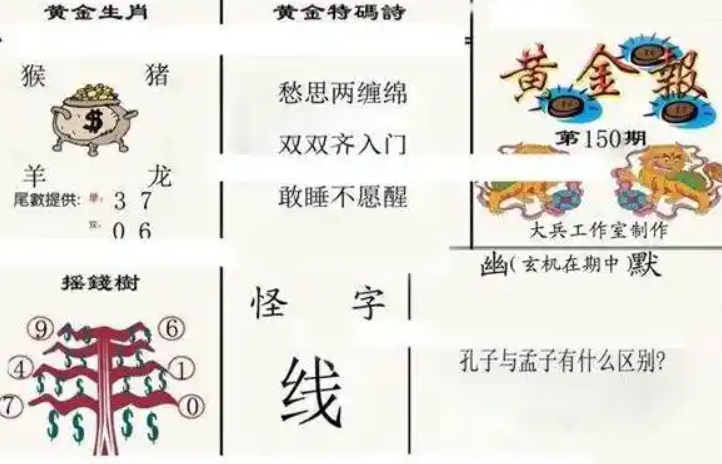 黄金生肖
猴 猪
$
羊 龙
尾數提供: 单: 3 7
双: 0 6
黄金特碼詩
愁思两缠绵
双双齐入门
敢睡不愿醒
黄金報
第150期
大兵工作室制作
幽(玄机在期中)默
孔子与孟子有什么区别?
摇錢樹
⑨ ⑥
④ ①
⑦ ⓪
怪 字
线